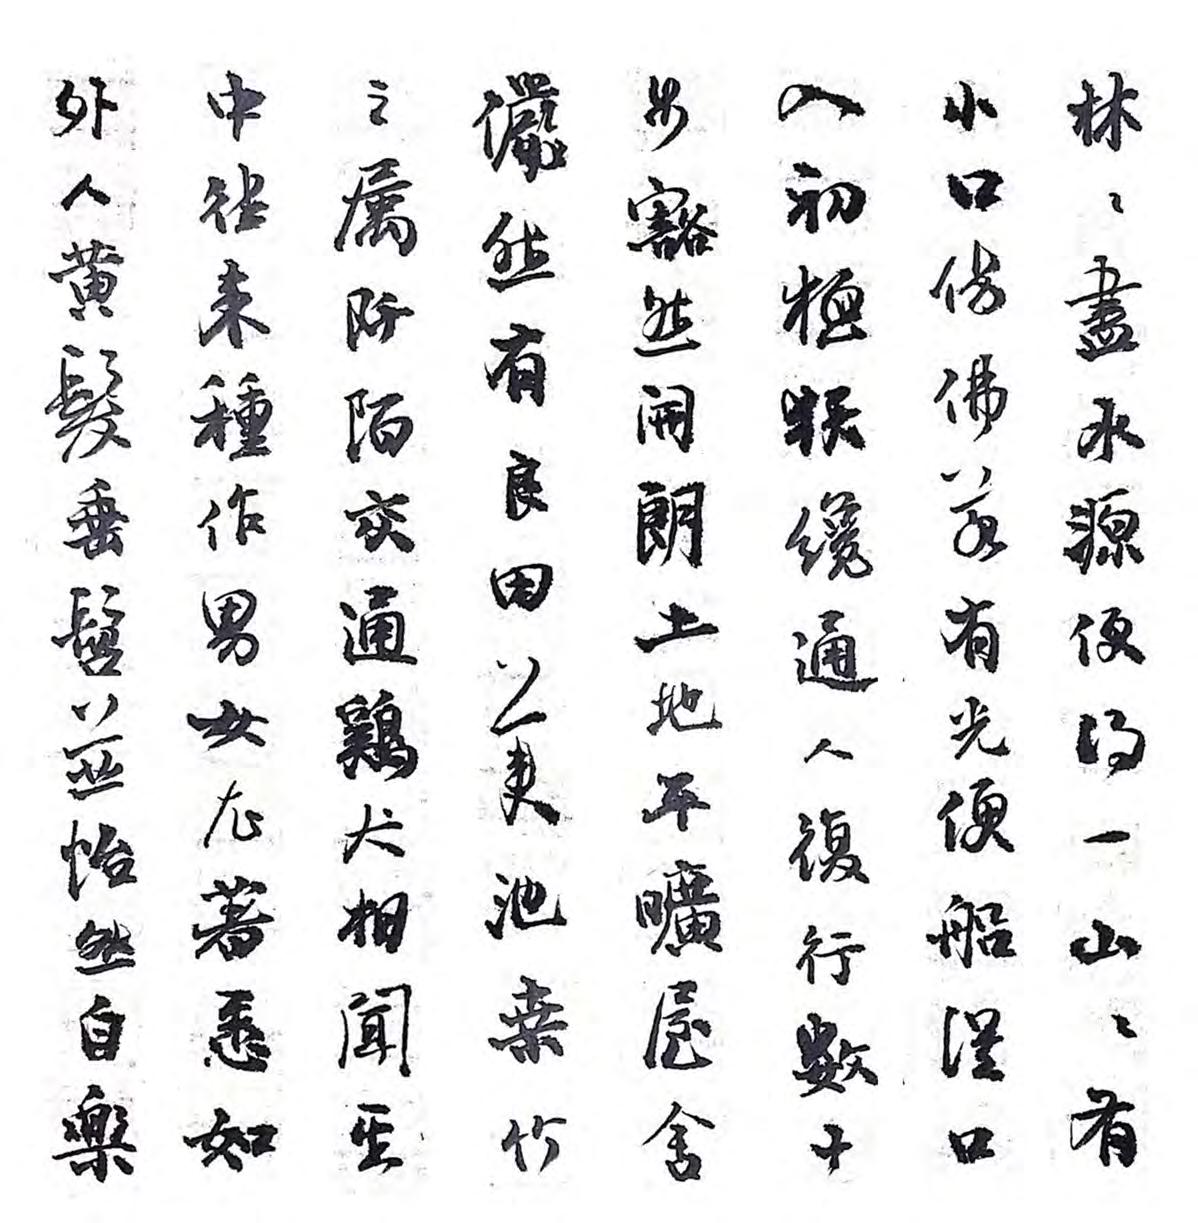 林〻盡水源便得一山〻有
小口髣佛若有光便船從口
入初極狹纔通人復行數十
步豁然開朗土地平曠屋舍
儼然有良田美池桑竹
之属阡陌交通鷄犬相聞其
中往来種作男女衣著悉如
外人黄髮垂髫並怡然自樂